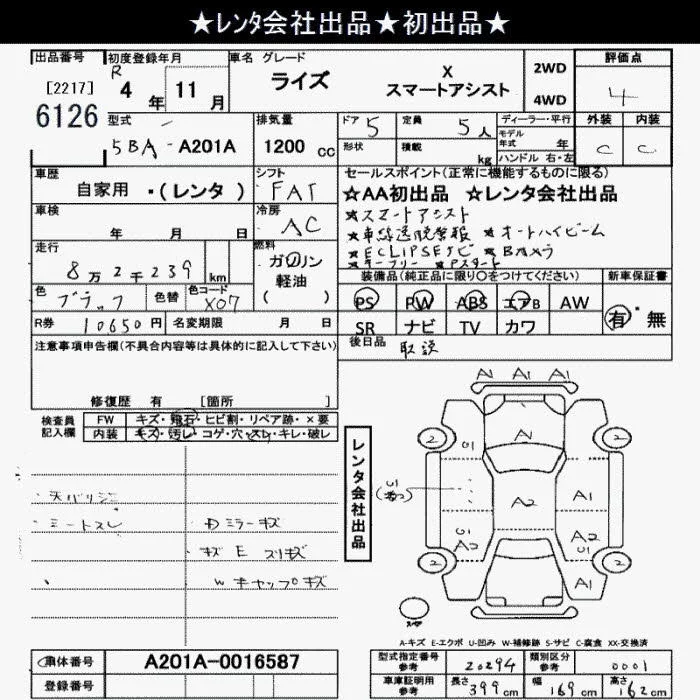 ★レンタ会社出品★初出品★
出品番号 初度登録年月 車名 グレード 2WD 4WD 評価点
[2217] R 4年 11月 ライズ X スマートアシスト 4
6126 型式 排気量 ドア 5 定員 5人 ディーラー・平行 外装 内装
5BA-A201A 1200cc 形状 積載 kg モデル年式 年 C C
ハンドル 右・左
車歴 シフト セールスポイント(正常に機能するものに限る)
自家用・(レンタ) FAT ★AA初出品 ★レンタ会社出品
車検 年 月 日 冷房 AC ★スマートアシスト
★車線逸脱警報 ★オートハイビーム
走行 8万2千239km 燃料 ガソリン 軽油 ( ) ★ECLIPSEナビ ★Bカメラ
★キーフリー ★Pスタート
装備品(純正品に限り○をつけてください) 新車保証書
色 ブラック 色替 色コード X07 PS PW ABS エアB AW 有・無
R券 10650円 名変期限 月 日 SR ナビ TV カワ
注意事項申告欄(不具合内容等は具体的に記入して下さい) 後日品 取説
修復歴 有 [箇所 ]
検査員記入欄 FW キズ・飛石・ヒビ割・リペア跡・×要
内装 キズ・汚レ・コゲ・穴・スレ・キレ・破レ
レンタ会社出品
A1 A1 A1
A
2 2
A2 A1
A2 A2
2 2
A1
シートスレ ミラーキズ
キズ E スリキズ
W キャップキズ
A-キズ E-エクボ U-凹み W-補修跡 S-サビ C-腐食 XX-交換済
車体番号 A201A-0016587 型式指定番号 参考 20294 類別区分 参考 0001
登録番号 車庫証明用 参考 長さ 399cm 幅 169cm 高さ 162cm